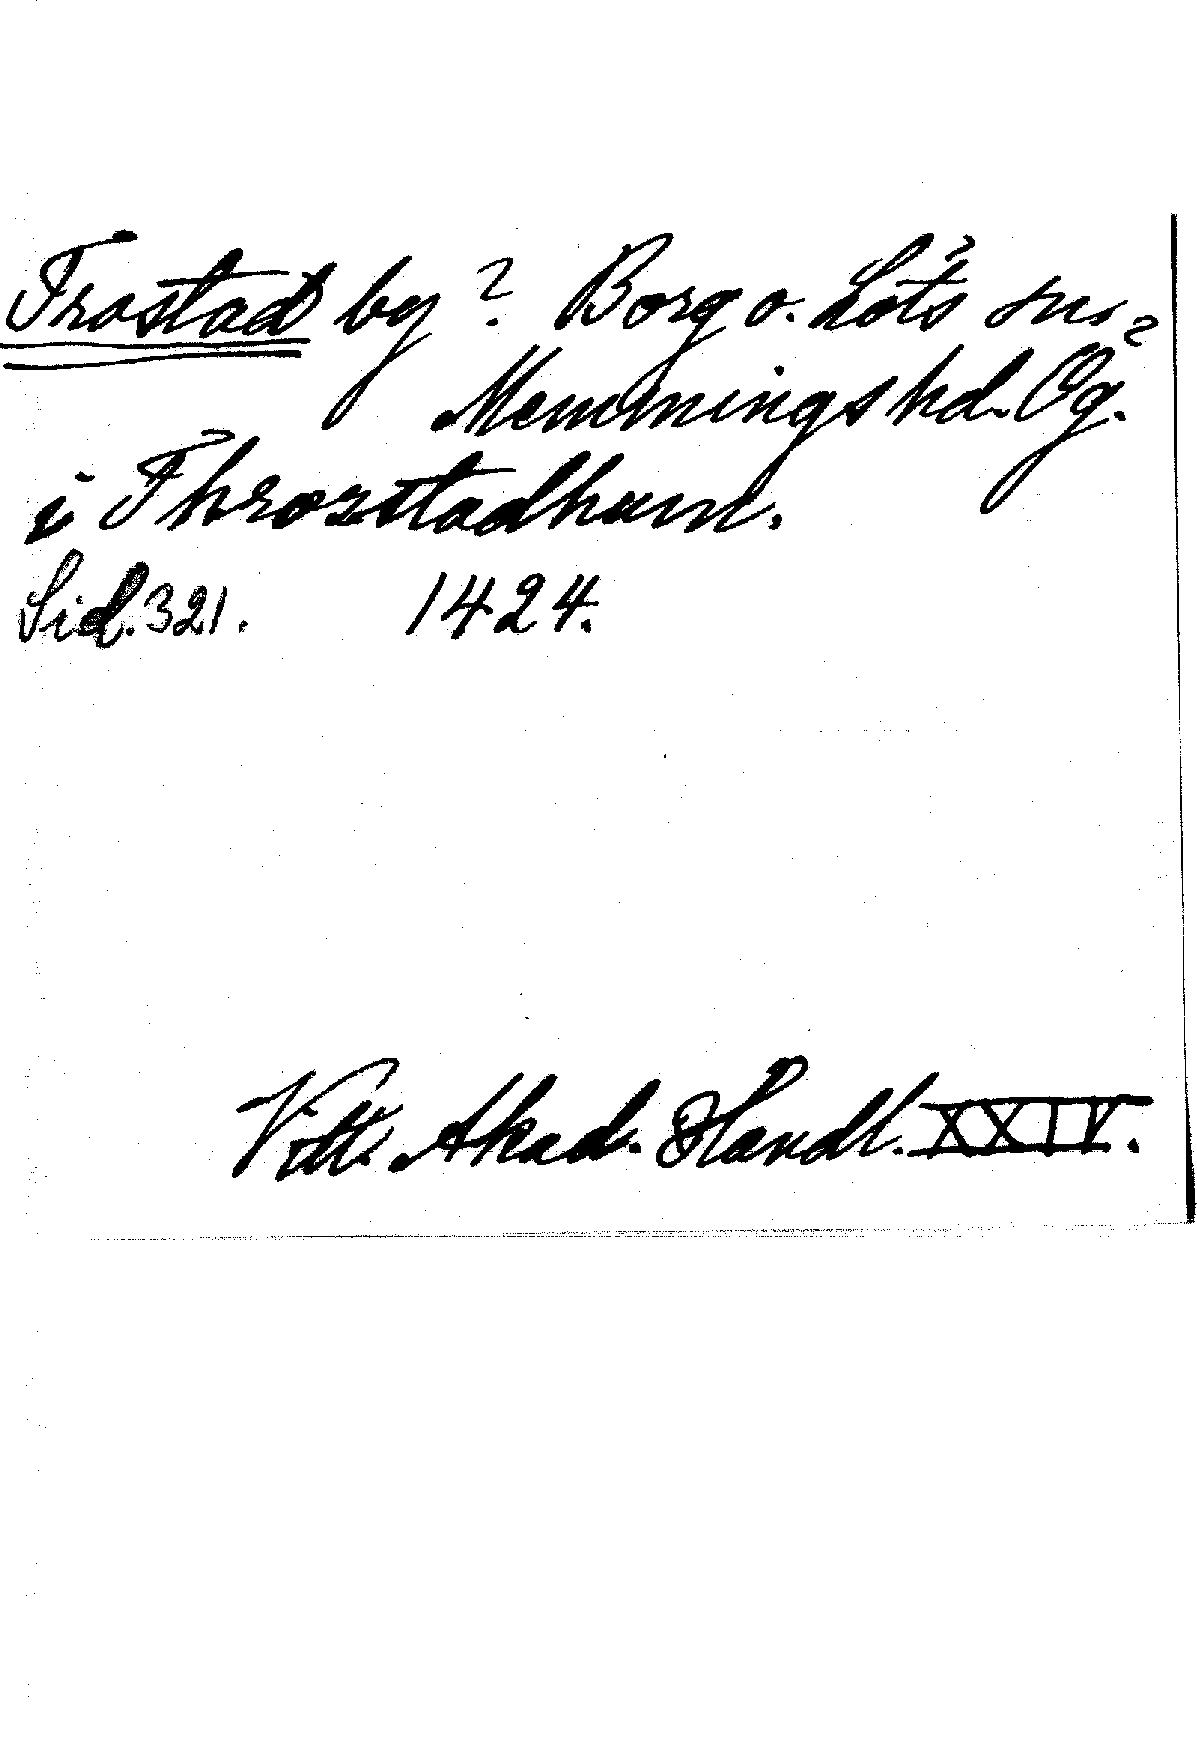 Trostad by? Borg o. Löt's sn.?
Memmings hd. Ög.
i Throzstadhum.
Sid. 321. 1424.
Vitt. Akad. Handl. XXIV.